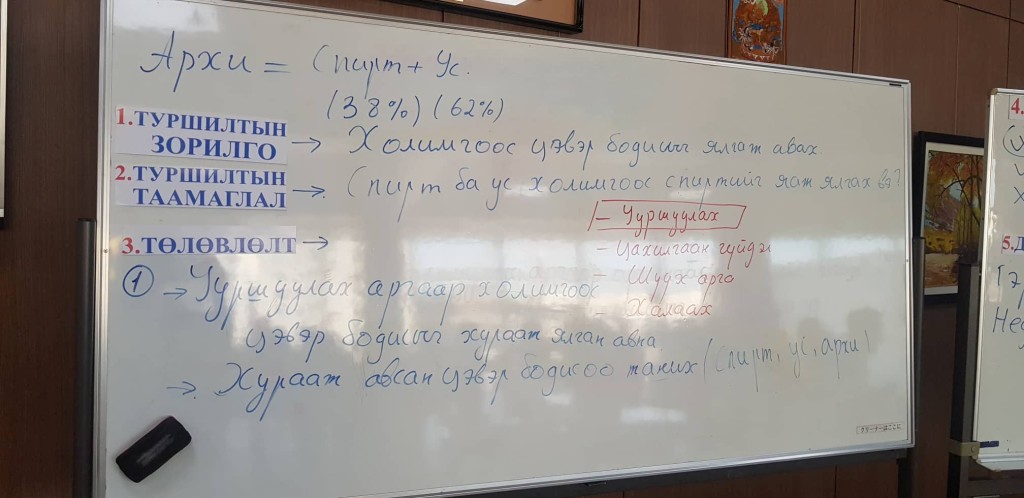 Архи = Спирт + Ус.
(38%) (62%)
1.ТУРШИЛТЫН
ЗОРИЛГО → Холимгоос цэвэр бодисыг ялгаж авах.
2.ТУРШИЛТЫН
ТААМАГЛАЛ → Спирт ба ус холимгоос спиртийг яаж ялгах вэ?
- Ууршуулах
3.ТӨЛӨВЛӨЛТ →
- Цахилгаан гүйдэл
- Шүүх арга
- Халаах
① → Ууршуулах аргаар холимгоос
цэвэр бодисыг хурааж ялган авна.
→ Хурааж авсан цэвэр бодисоо таних (спирт, ус, архи)
クリーナーはここに
4.
5.Д
Нес